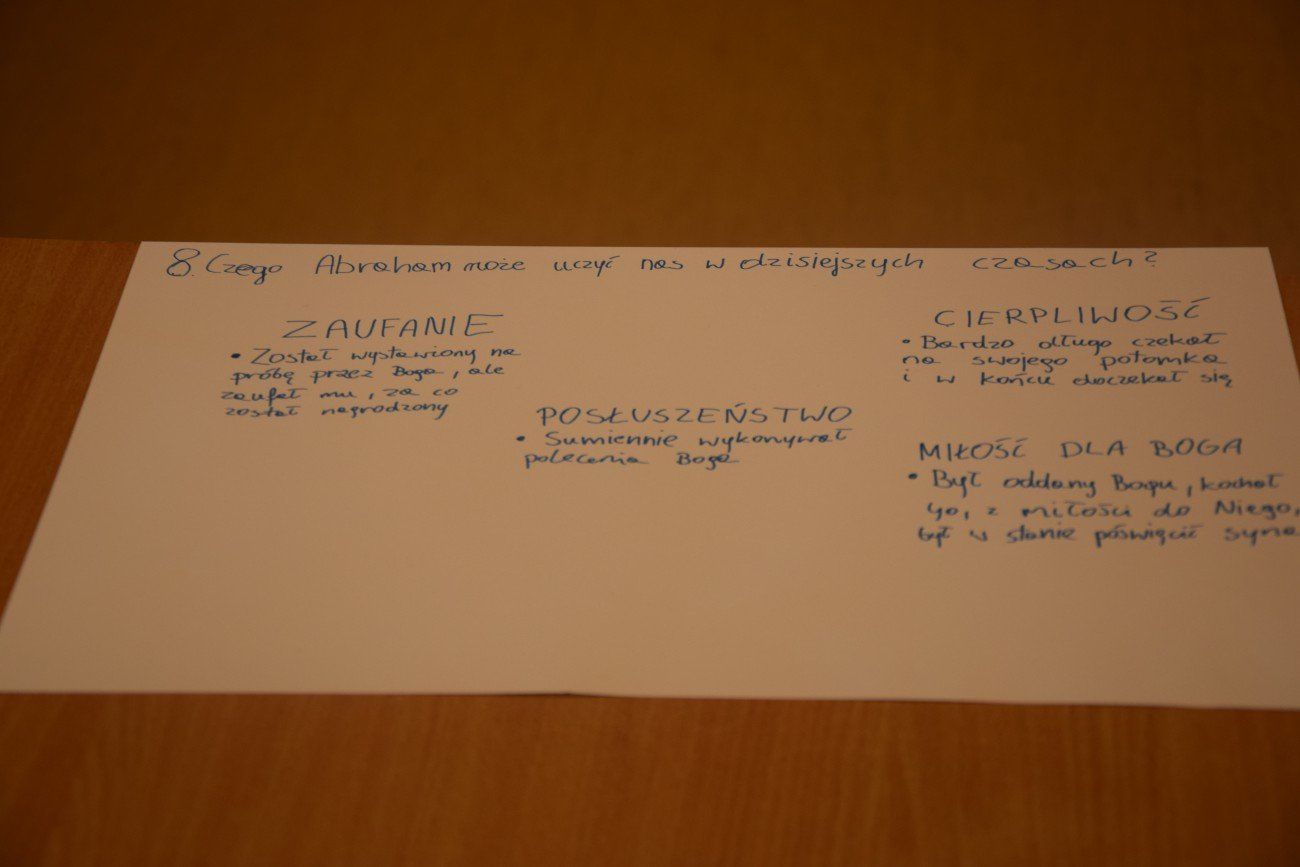 8. Czego Abraham może uczyć nas w dzisiejszych czasach?
ZAUFANIE
• Został wystawiony na
próbę przez Boga, ale
zaufał mu, za co
został nagrodzony
POSŁUSZEŃSTWO
• Sumiennie wykonywał
polecenia Boga
CIERPLIWOŚĆ
• Bardzo długo czekał
na swojego potomka
i w końcu doczekał się
MIŁOŚĆ DLA BOGA
• Był oddany Bogu, kochał
go, z miłości do Niego,
był w stanie poświęcić syna